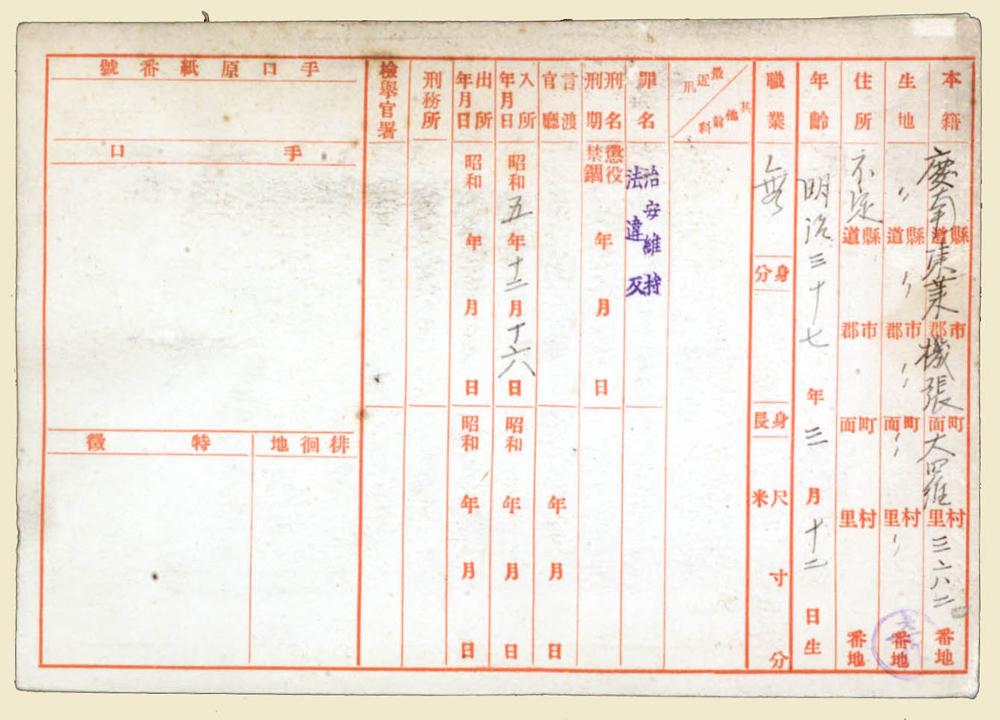 本籍 慶南 縣道 東萊 市郡 機張 町面 大羅 村里 三六二 番地
生地 〃 縣道 〃 市郡 〃 町面 〃 村里 〃 番地
住所 不定 縣道 市郡 町面 村里 番地
年齡 明治三十七年三月十二日生
職業 無 身分 身長 尺米 寸 分
最近刑 其他前科
罪名 治安維持法違反
刑名 懲役
刑期 禁錮 年 月 日
言渡官廳 年 月 日
入所年月日 昭和五年十二月十六日 昭和 年 月 日
出所年月日 昭和 年 月 日 昭和 年 月 日
刑務所
檢擧官署
手口原紙番號
手口
徘徊地
特徵